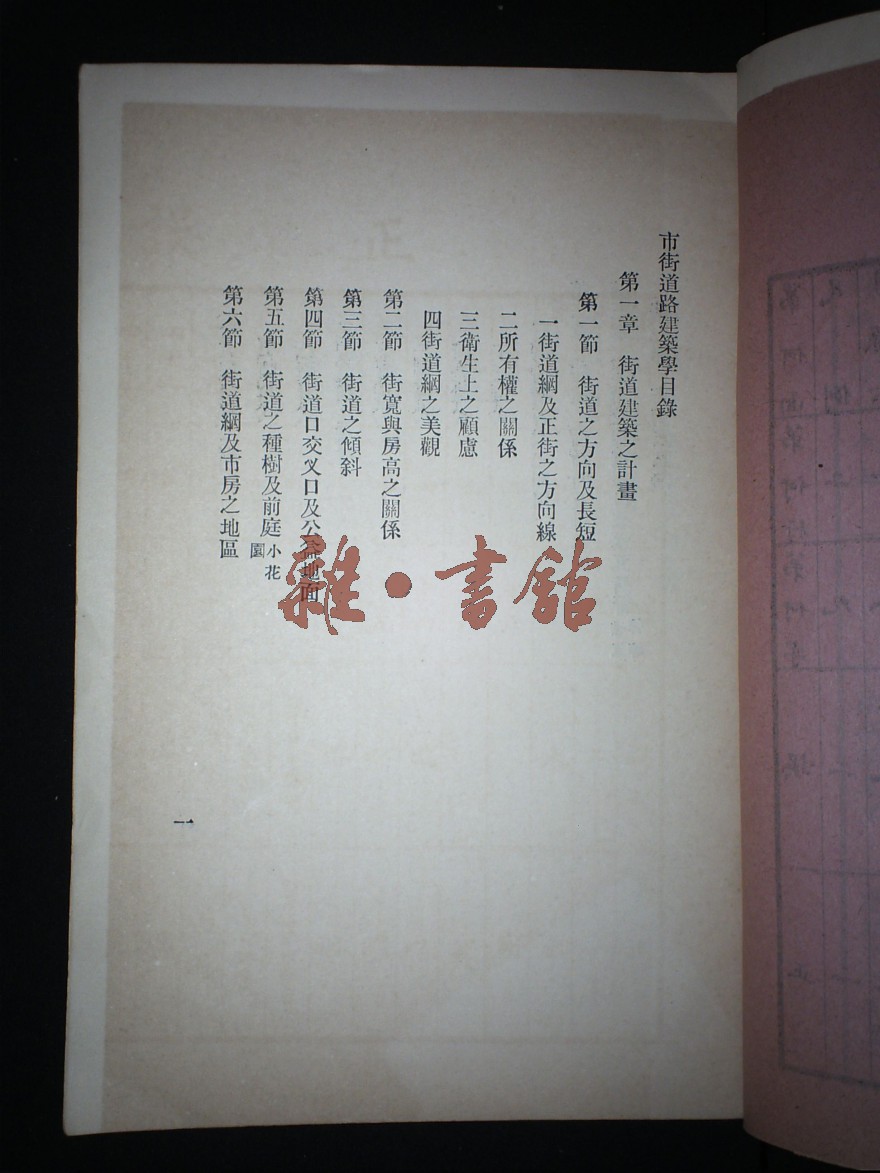 市街道路建築學目錄
第一章 街道建築之計畫
第一節 街道之方向及長短
一街道綱及正街之方向線
二所有權之關係
三衛生上之顧慮
四街道綱之美觀
第二節 街寬與房高之關係
第三節 街道之傾斜
第四節 街道口交叉口及公益地面
第五節 街道之種樹及前庭小花園
第六節 街道綱及市房之地區
一
雜·書館